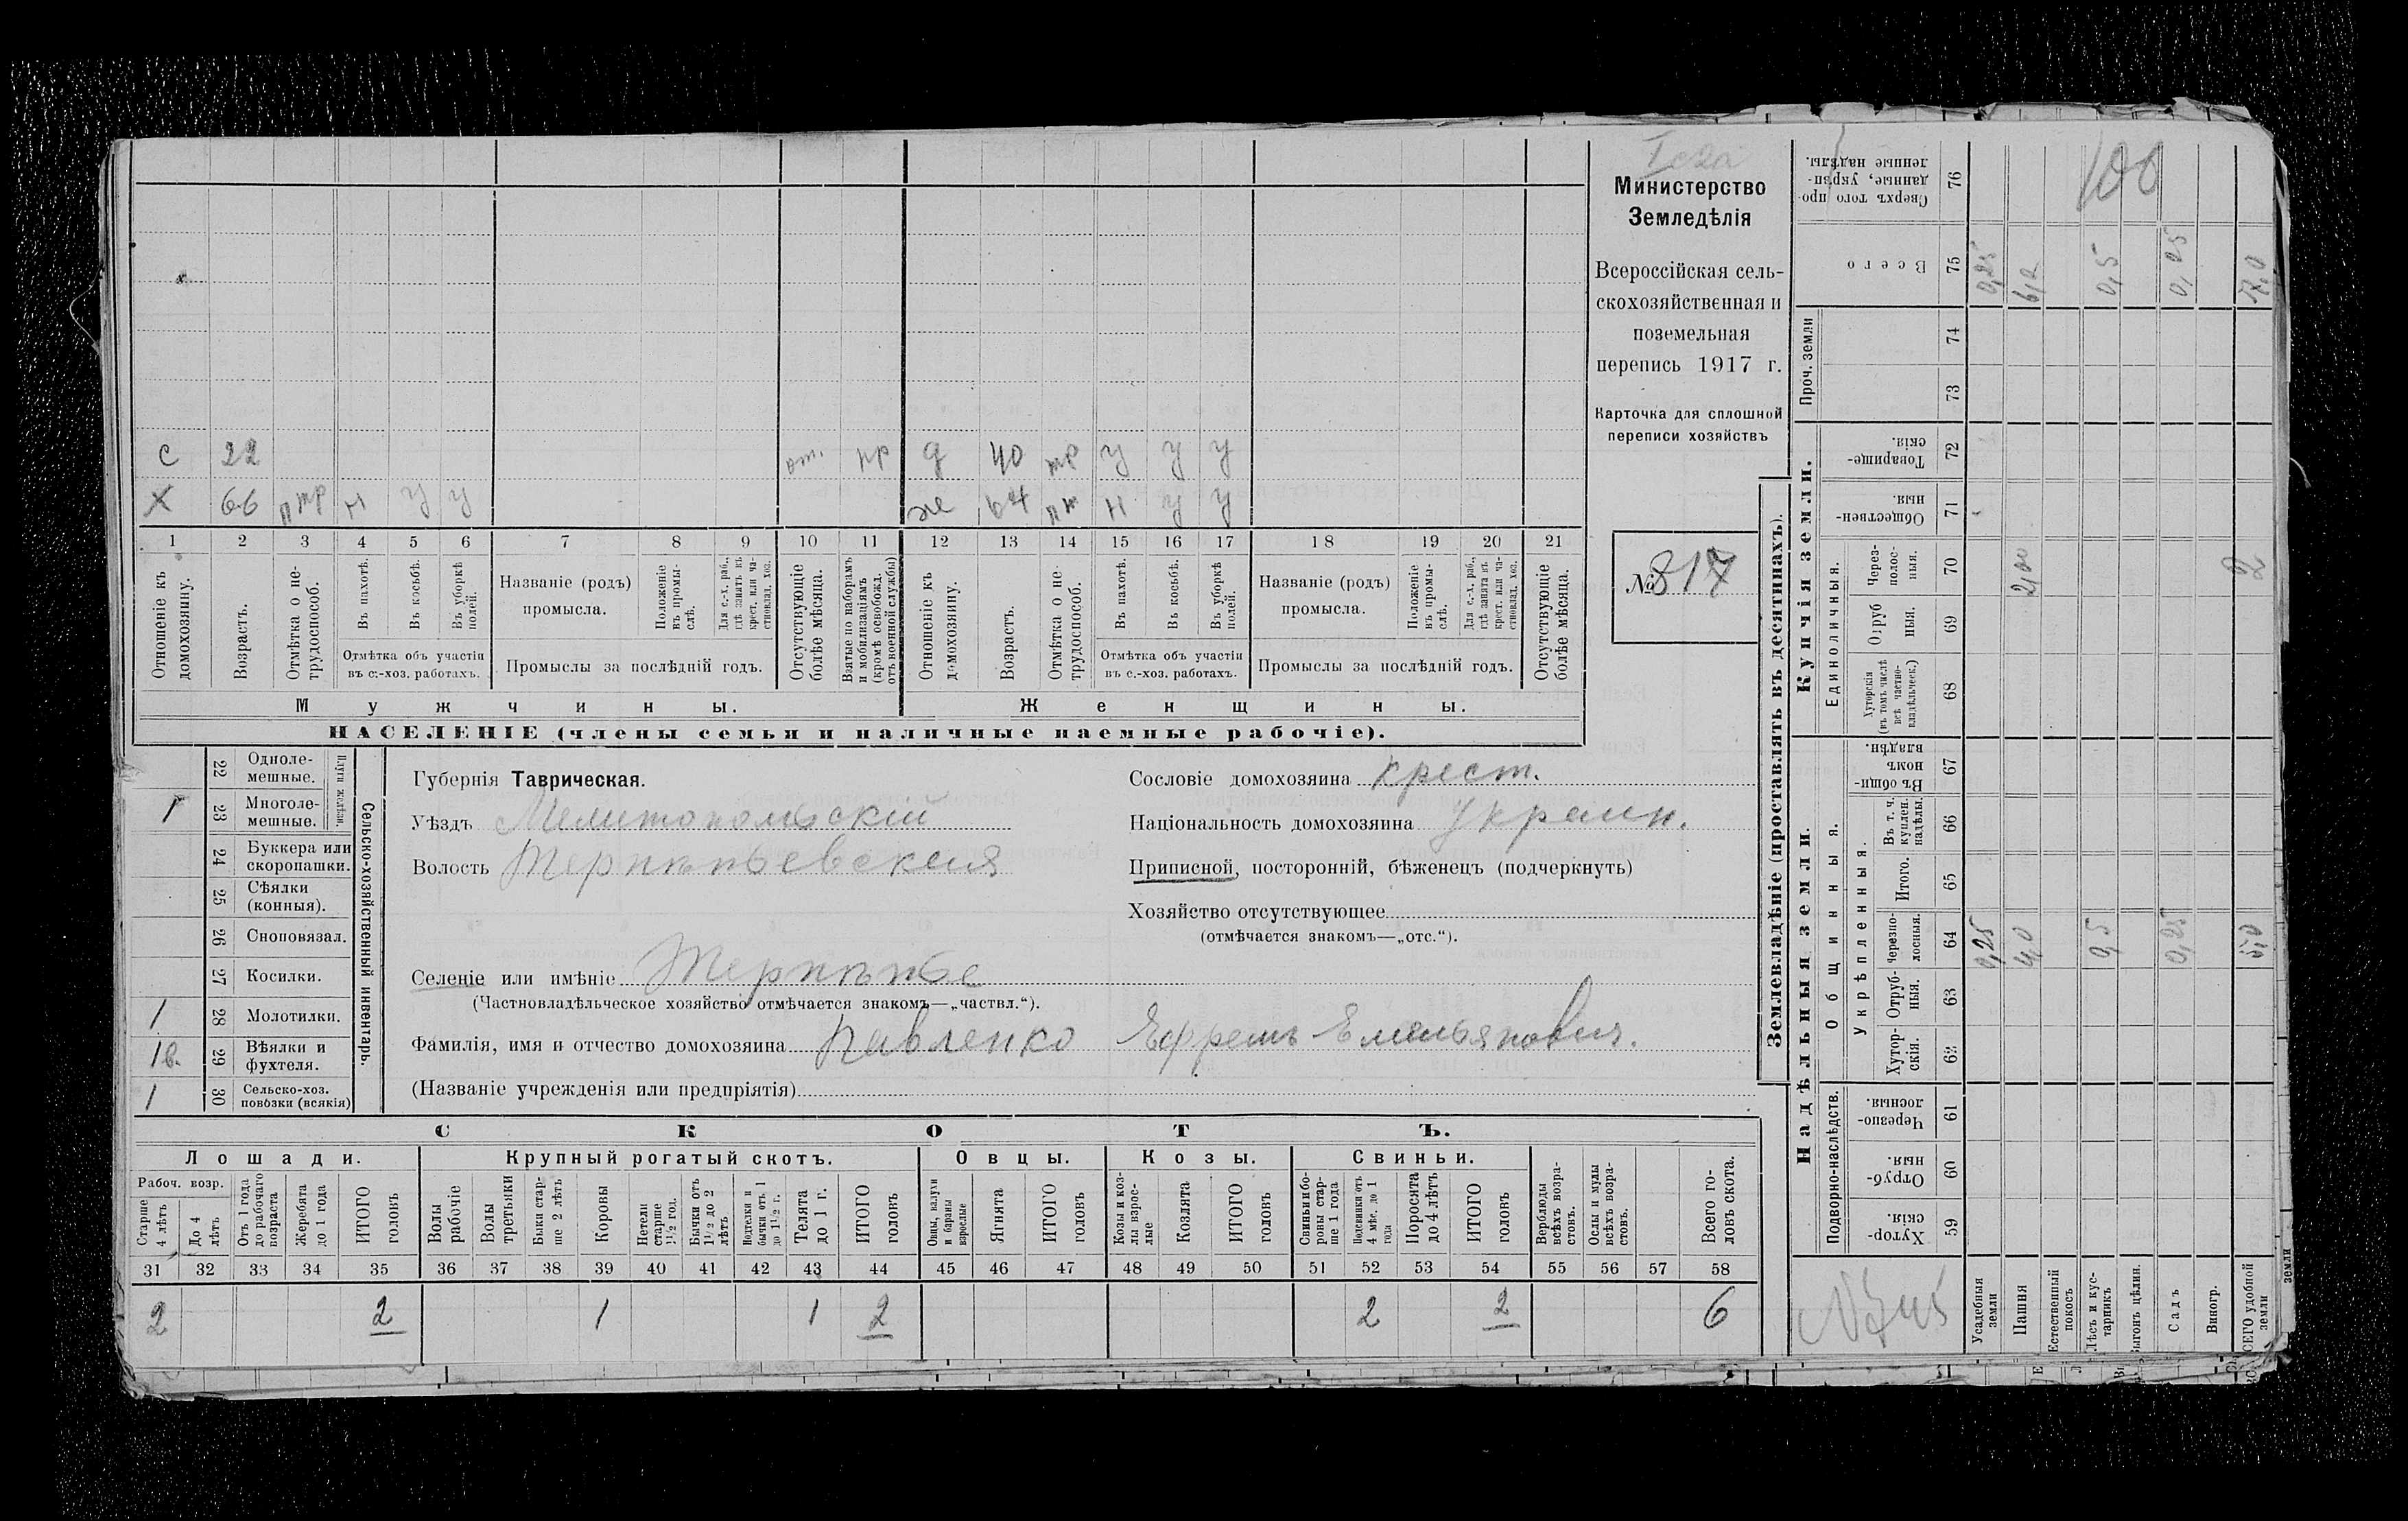 Министерство
Земледѣлія
Всероссійская сель-
скохозяйственная и
поземельная
перепись 1917 г.
Карточка для сплошной
переписи хозяйствъ
№ 817
с 22 от. пр д 40 тр у у у
х 66 птр н у у же 64 пт н у у
1 2 3 4 5 6 7 8 9 10 11 12 13 14 15 16 17 18 19 20 21
Отношеніе къ домохозяину.
Возрастъ.
Отмѣтка о не-трудоспособ.
Въ пахотѣ.
Въ косьбѣ.
Въ уборкѣ полей.
Отмѣтка объ участіи
въ с.-хоз. работахъ.
Названіе (родъ)
промысла.
Положеніе въ промы-слѣ.
Для с.-х. раб., гдѣ занятъ въ крест. или ча-стновлад. хоз.
Промыслы за послѣдній годъ.
Отсутствующіе болѣе мѣсяца.
Взятые по наборамъ и мобилизаціямъ (кромѣ освобожд. отъ военной службы)
Отношеніе къ домохозяину.
Возрастъ.
Отмѣтка о не-трудоспособ.
Въ пахотѣ.
Въ косьбѣ.
Въ уборкѣ полей.
Отмѣтка объ участіи
въ с.-хоз. работахъ.
Названіе (родъ)
промысла.
Положеніе въ промы-слѣ.
Для с.-х. раб., гдѣ занята въ крест. или ча-стновлад. хоз.
Промыслы за послѣдній годъ.
Отсутствующіе болѣе мѣсяца.
Мужчины.
Женщины.
НАСЕЛЕНІЕ (члены семьи и наличные наемные рабочіе).
Сельско-хозяйственный инвентарь.
Плуги желѣзн.
22 Одноле-мешные.
1 23 Многоле-мешные.
24 Буккера или скоропашки.
25 Сѣялки (конныя).
26 Сноповязал.
27 Косилки.
1 28 Молотилки.
1в. 29 Вѣялки и фухтеля.
1 30 Сельско-хоз. повозки (всякія)
Губернія Таврическая.
Уѣздъ Мелитопольскій
Волость Терпѣньевская
Селеніе или имѣніе Терпѣнье
(Частновладѣльческое хозяйство отмѣчается знакомъ—„частвл.“).
Фамилія, имя и отчество домохозяина Павленко Ефремъ Емельянович.
(Названіе учрежденія или предпріятія)
Сословіе домохозяина крест.
Національность домохозяина Украин.
Приписной, посторонній, бѣженецъ (подчеркнуть)
Хозяйство отсутствующее
(отмѣчается знакомъ—„отс.“).
СКОТЪ.
Лошади. Крупный рогатый скотъ. Овцы. Козы. Свиньи.
Рабоч. возр.
Старше 4 лѣтъ
До 4 лѣтъ
Отъ 1 года до рабочаго возраста
Жеребята до 1 года
ИТОГО головъ
Волы рабочіе
Волы третьяки
Быки стар-ше 2 лѣтъ
Коровы
Нетели старше 1½ год.
Бычки отъ 1½ до 2 лѣтъ
Подтелки и бычки отъ 1 до 1½ г.
Телята до 1 г.
ИТОГО головъ
Овцы, валухи и бараны взрослые
Ягнята
ИТОГО головъ
Козы и коз-лы взрос-лые
Козлята
ИТОГО головъ
Свиньи и бо-ровы стар-ше 1 года
Подсвинки отъ 4 мѣс. до 1 года
Поросята до 4 лѣтъ
ИТОГО головъ
Верблюды всѣхъ возра-стовъ.
Ослы и мулы всѣхъ возра-стовъ.
Всего го-ловъ скота.
31 32 33 34 35 36 37 38 39 40 41 42 43 44 45 46 47 48 49 50 51 52 53 54 55 56 57 58
2 2 1 1 2 2 2 6
Землевладѣніе (проставлять въ десятинахъ).
Надѣльныя земли.
Купчія земли.
Проч. земли
Подворно-наслѣдств.
Общинныя.
Укрѣпленныя.
Единоличныя.
Хутор-скія. 59
Отруб-ныя. 60
Черезпо-лосныя. 61
Хутор-скія. 62
Отруб-ныя. 63
Черезпо-лосныя. 64
Итого. 65
Въ т. ч. куплен. надѣлы. 66
Въ общи-номъ владѣн. 67
Хуторскія (въ томъ числѣ всѣ частно-владѣльческ.) 68
Отруб ныя. 69
Через-полос-ныя. 70
Обществен-ныя. 71
Товарище-скія. 72
73 74
Всего 75
Сверхъ того про-данные, укрѣп-ленные надѣлы. 76
100
Усадебныя земли 0,25 0,25
Пашня 4,0 2,00 6,2
Естественный покосъ
Лѣсъ и кус-тарникъ 0,5 0,5
Выгонъ цѣлин.
Садъ 0,25 0,25
Виногр.
ВСЕГО удобной земли 5,0 2 7,0